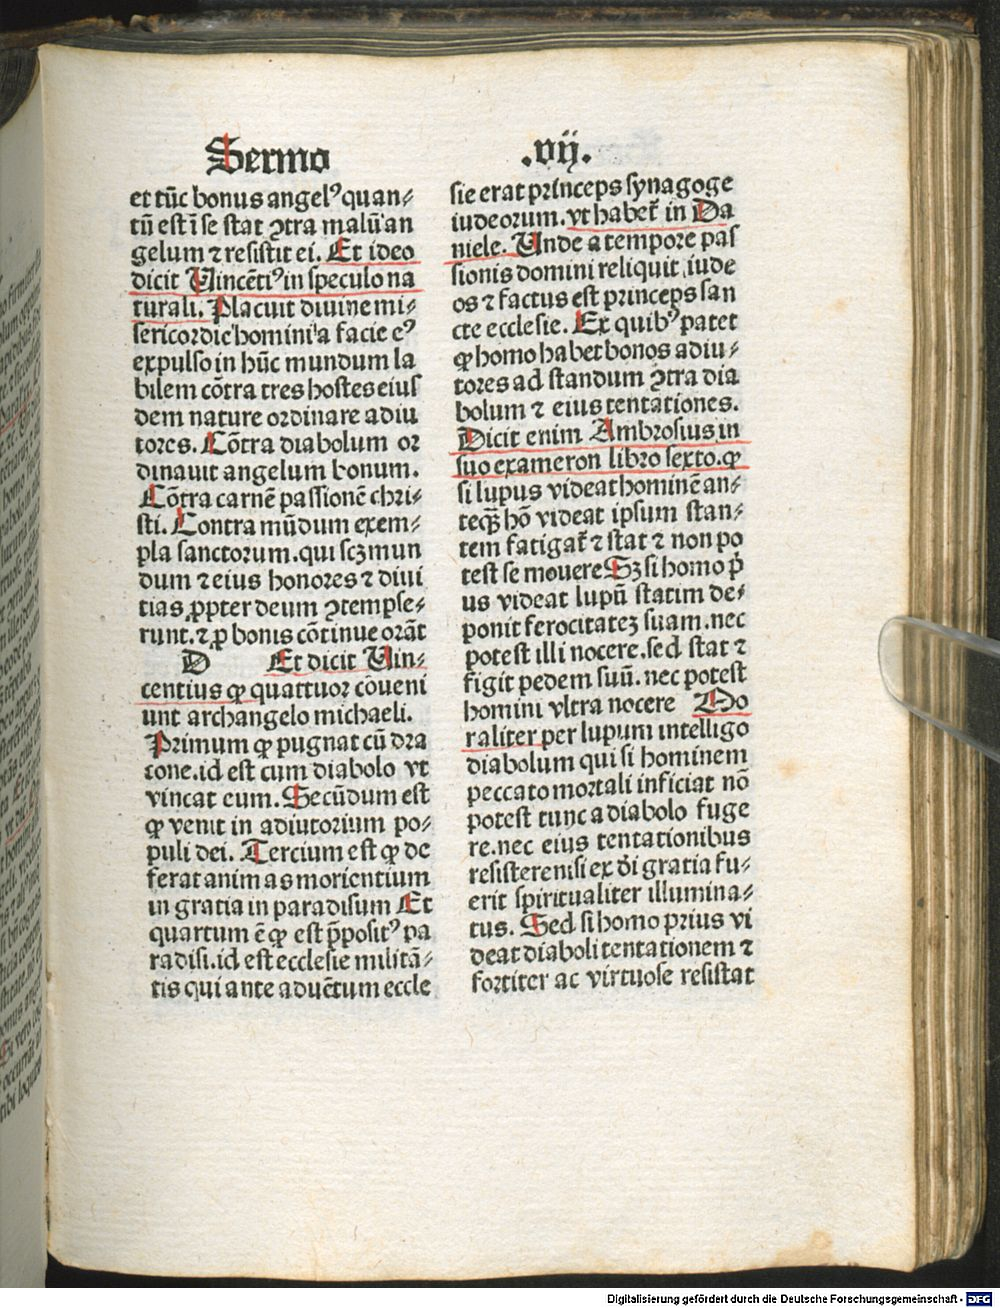 Sermo .vij.
et tūc bonus angelꝰ quan⸗
tū est ī se stat ꝯtra malū an
gelum ⁊ resistit ei. Et ideo
dicit Vincētiꝰ in speculo na
turali. Placuit diuine mi⸗
sericordie homini a facie eꝰ
expulso in hūc mundum la
bilem cōtra tres hostes eius
dem nature ordinare adiu
tores. Cōtra diabolum or
dinauit angelum bonum.
Cōtra carnē passionē chri⸗
sti. Contra mūdum exem⸗
pla sanctorum. qui scꝫ mun
dum ⁊ eius honores ⁊ diui
tias ꝓpter deum ꝯtempse⸗
runt. ⁊ ꝓ bonis cōtinue orāt
D Et dicit Vin⸗
centius ꝙ quattuor cōueni
unt archangelo michaeli.
Primum ꝙ pugnat cū dra
cone. id est cum diabolo vt
vincat eum. Secūdum est
ꝙ venit in adiutorium po⸗
puli dei. Tercium est ꝙ de
ferat animas morientium
in gratia in paradisum Et
quartum ē ꝙ est p̄positꝰ pa
radisi. id est ecclesie militā⸗
tis qui ante aduētum eccle
sie erat princeps synagoge
iudeorum. vt habet̄ in Da
niele. Unde a tempore pas
sionis domini reliquit iude
os ⁊ factus est princeps san
cte ecclesie. Ex quibꝰ patet
ꝙ homo habet bonos adiu⸗
tores ad standum ꝯtra dia
bolum ⁊ eius tentationes.
Dicit enim Ambrosius in
suo exameron libro sexto. ꝙ
si lupus videat hominē an⸗
teqꝫ hō videat ipsum stan⸗
tem fatigat̄ ⁊ stat ⁊ non po
test se mouere Sꝫ si homo p̄
us videat lupū statim de⸗
ponit ferocitateꝫ suam. nec
potest illi nocere. sed stat ⁊
figit pedem suū. nec potest
homini vltra nocere Mo
raliter per lupum intelligo
diabolum qui si hominem
peccato mortali inficiat nō
potest tunc a diabolo fuge
re. nec eius tentationibus
resistere nisi ex d̄i gratia fu⸗
erit spiritualiter illumina⸗
tus. Sed si homo prius vi
deat diaboli tentationem ⁊
fortiter ac virtuose resistat
Digitalisierung gefördert durch die Deutsche Forschungsgemeinschaft - DFG